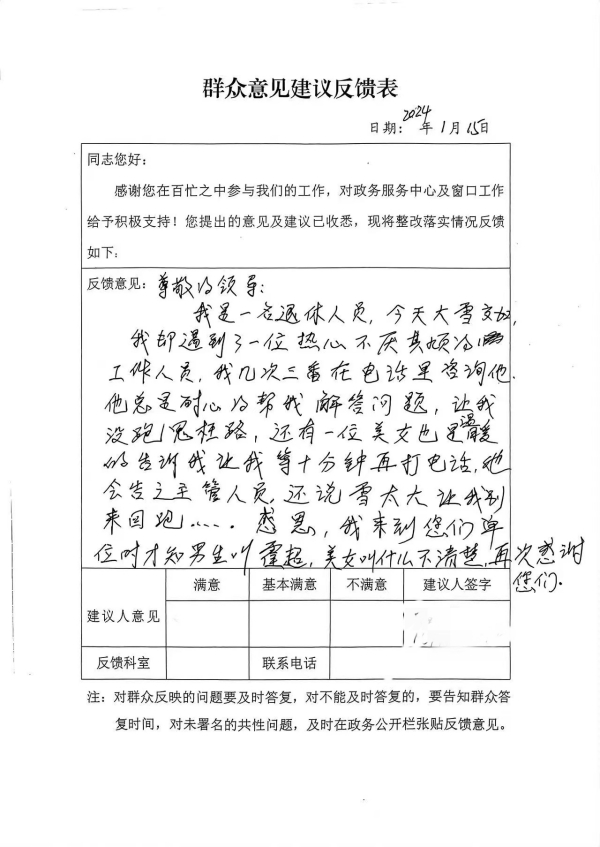 群众意见建议反馈表
日期：2024年1月15日
同志您好：
感谢您在百忙之中参与我们的工作，对政务服务中心及窗口工作
给予积极支持！您提出的意见及建议已收悉，现将整改落实情况反馈
如下：
反馈意见：尊敬的领导：
我是一名退休人员，今天大雪交加，
我却遇到了一位热心不厌其烦的
工作人员，我几次三番在电话里咨询他.
他总是耐心的帮我解答问题，让我
没跑冤枉路，还有一位美女也是温暖
的告诉我让我等十分钟再打电话，她
会告之主管人员，还说雪太大让我别
来回跑……. 感恩，我来到您们单
位时才知男生叫霍超，美女叫什么不清楚，再次感谢
您们.
满意 基本满意 不满意 建议人签字
建议人意见
反馈科室 联系电话
注：对群众反映的问题要及时答复，对不能及时答复的，要告知群众答
复时间，对未署名的共性问题，及时在政务公开栏张贴反馈意见。